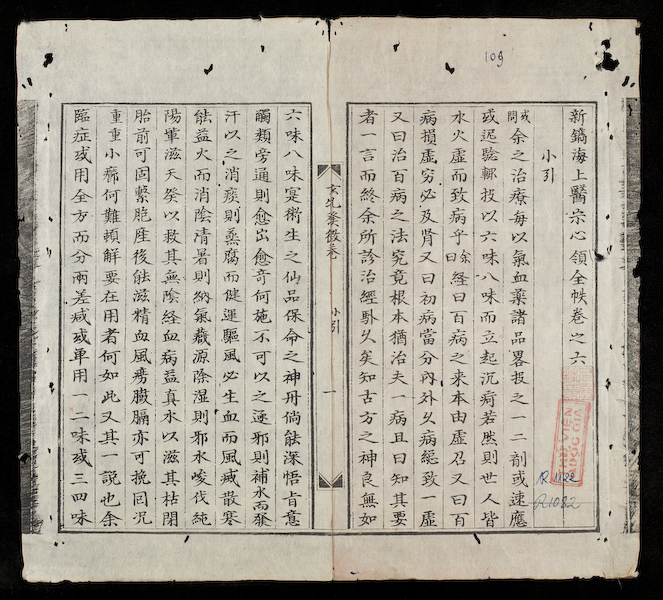 109
新鐫海上醫宗心領全帙卷之六
小引
或問余之治療每以氣血藥諸品畧投之一二劑或速應
或遲驗輒投以六味八味而立起沉疴若然則世人皆
水火虛而致病乎余曰經曰百病之來本由虛召又曰百
病損虛穷必及肾又曰初病當分內外久病總致一虛
又曰治百病之法究竟根本猶治夫一病且曰知其要
者一言而終余所診治經驗久矣知古方之神良無如
玄牝發微卷
小引
一
六味八味寔衛生之仙品保命之神丹倘能深悟肯意
觸類旁通則愈出愈竒何施不可以之逐邪則補水而發
汗以之消痰則蒸腐而健運驅風必生血而風滅散寒
能益火而消陰清暑則納氣藏源除湿則邪水峻伐純
陽單滋天癸以救其無陰經血病益真水以滋其枯閉
胎前可固繫胞產後能滋精血風癆臌膈亦可挽回况
重重小瘵何難頓解要在用者何如此又其一說也余
臨症或用全方而分兩差减或单用一二味或三四味
R.1122
R.1082